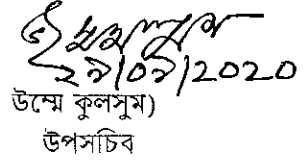 ২৯|০৯|2020
উম্মে কুলসুম)
উপসচিব